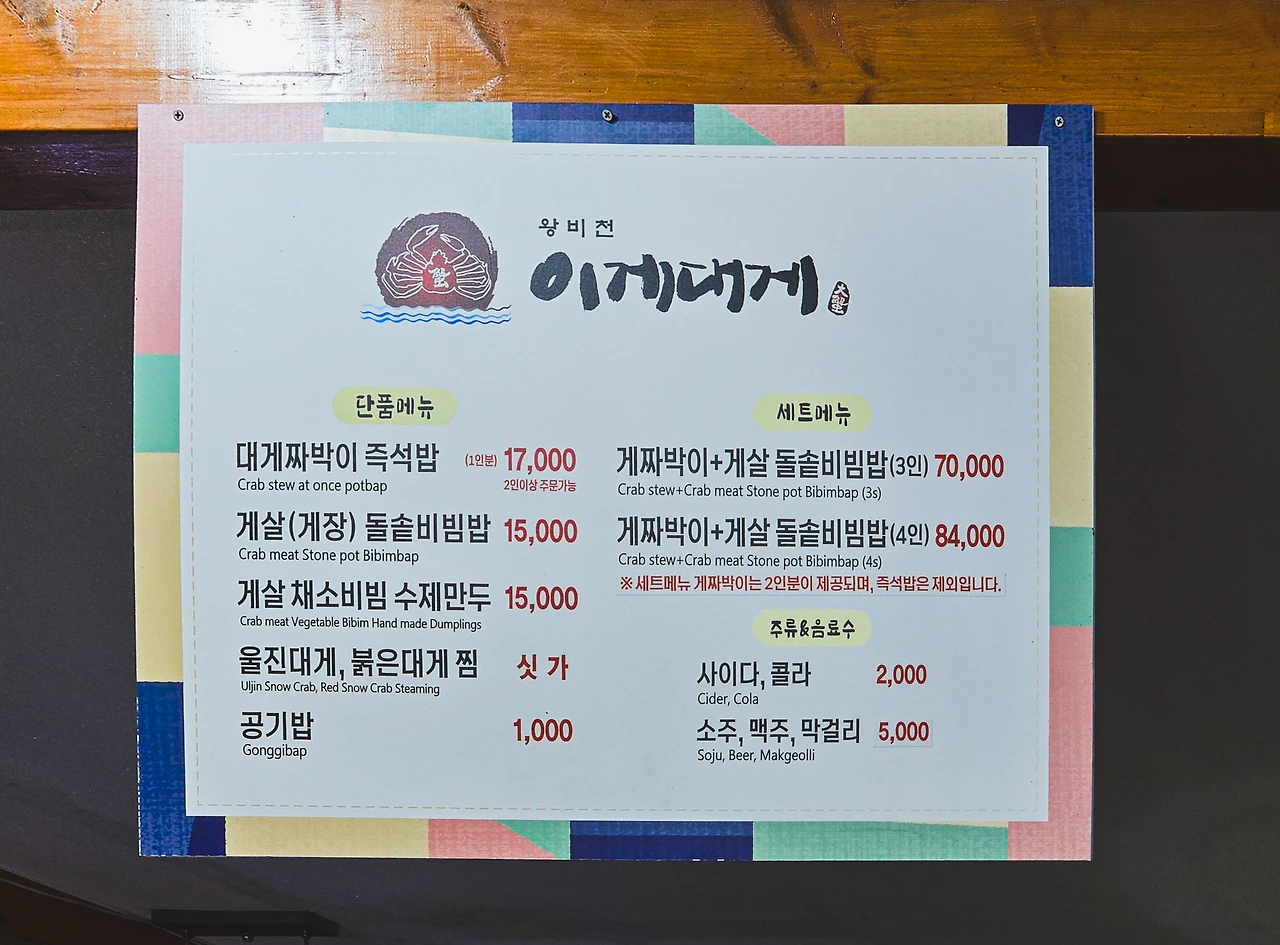 왕비천
이게대게
단품메뉴
대게짜박이 즉석밥 (1인분) 17,000
Crab stew at once potbap 2인이상 주문가능
게살(게장) 돌솥비빔밥 15,000
Crab meat Stone pot Bibimbap
게살 채소비빔 수제만두 15,000
Crab meat Vegetable Bibim Hand made Dumplings
울진대게, 붉은대게 찜 싯가
Uljin Snow Crab, Red Snow Crab Steaming
공기밥 1,000
Gonggibap
세트메뉴
게짜박이+게살 돌솥비빔밥(3인) 70,000
Crab stew+Crab meat Stone pot Bibimbap (3s)
게짜박이+게살 돌솥비빔밥(4인) 84,000
Crab stew+Crab meat Stone pot Bibimbap (4s)
※ 세트메뉴 게짜박이는 2인분이 제공되며, 즉석밥은 제외입니다.
주류&음료수
사이다, 콜라 2,000
Cider, Cola
소주, 맥주, 막걸리 5,000
Soju, Beer, Makgeolli